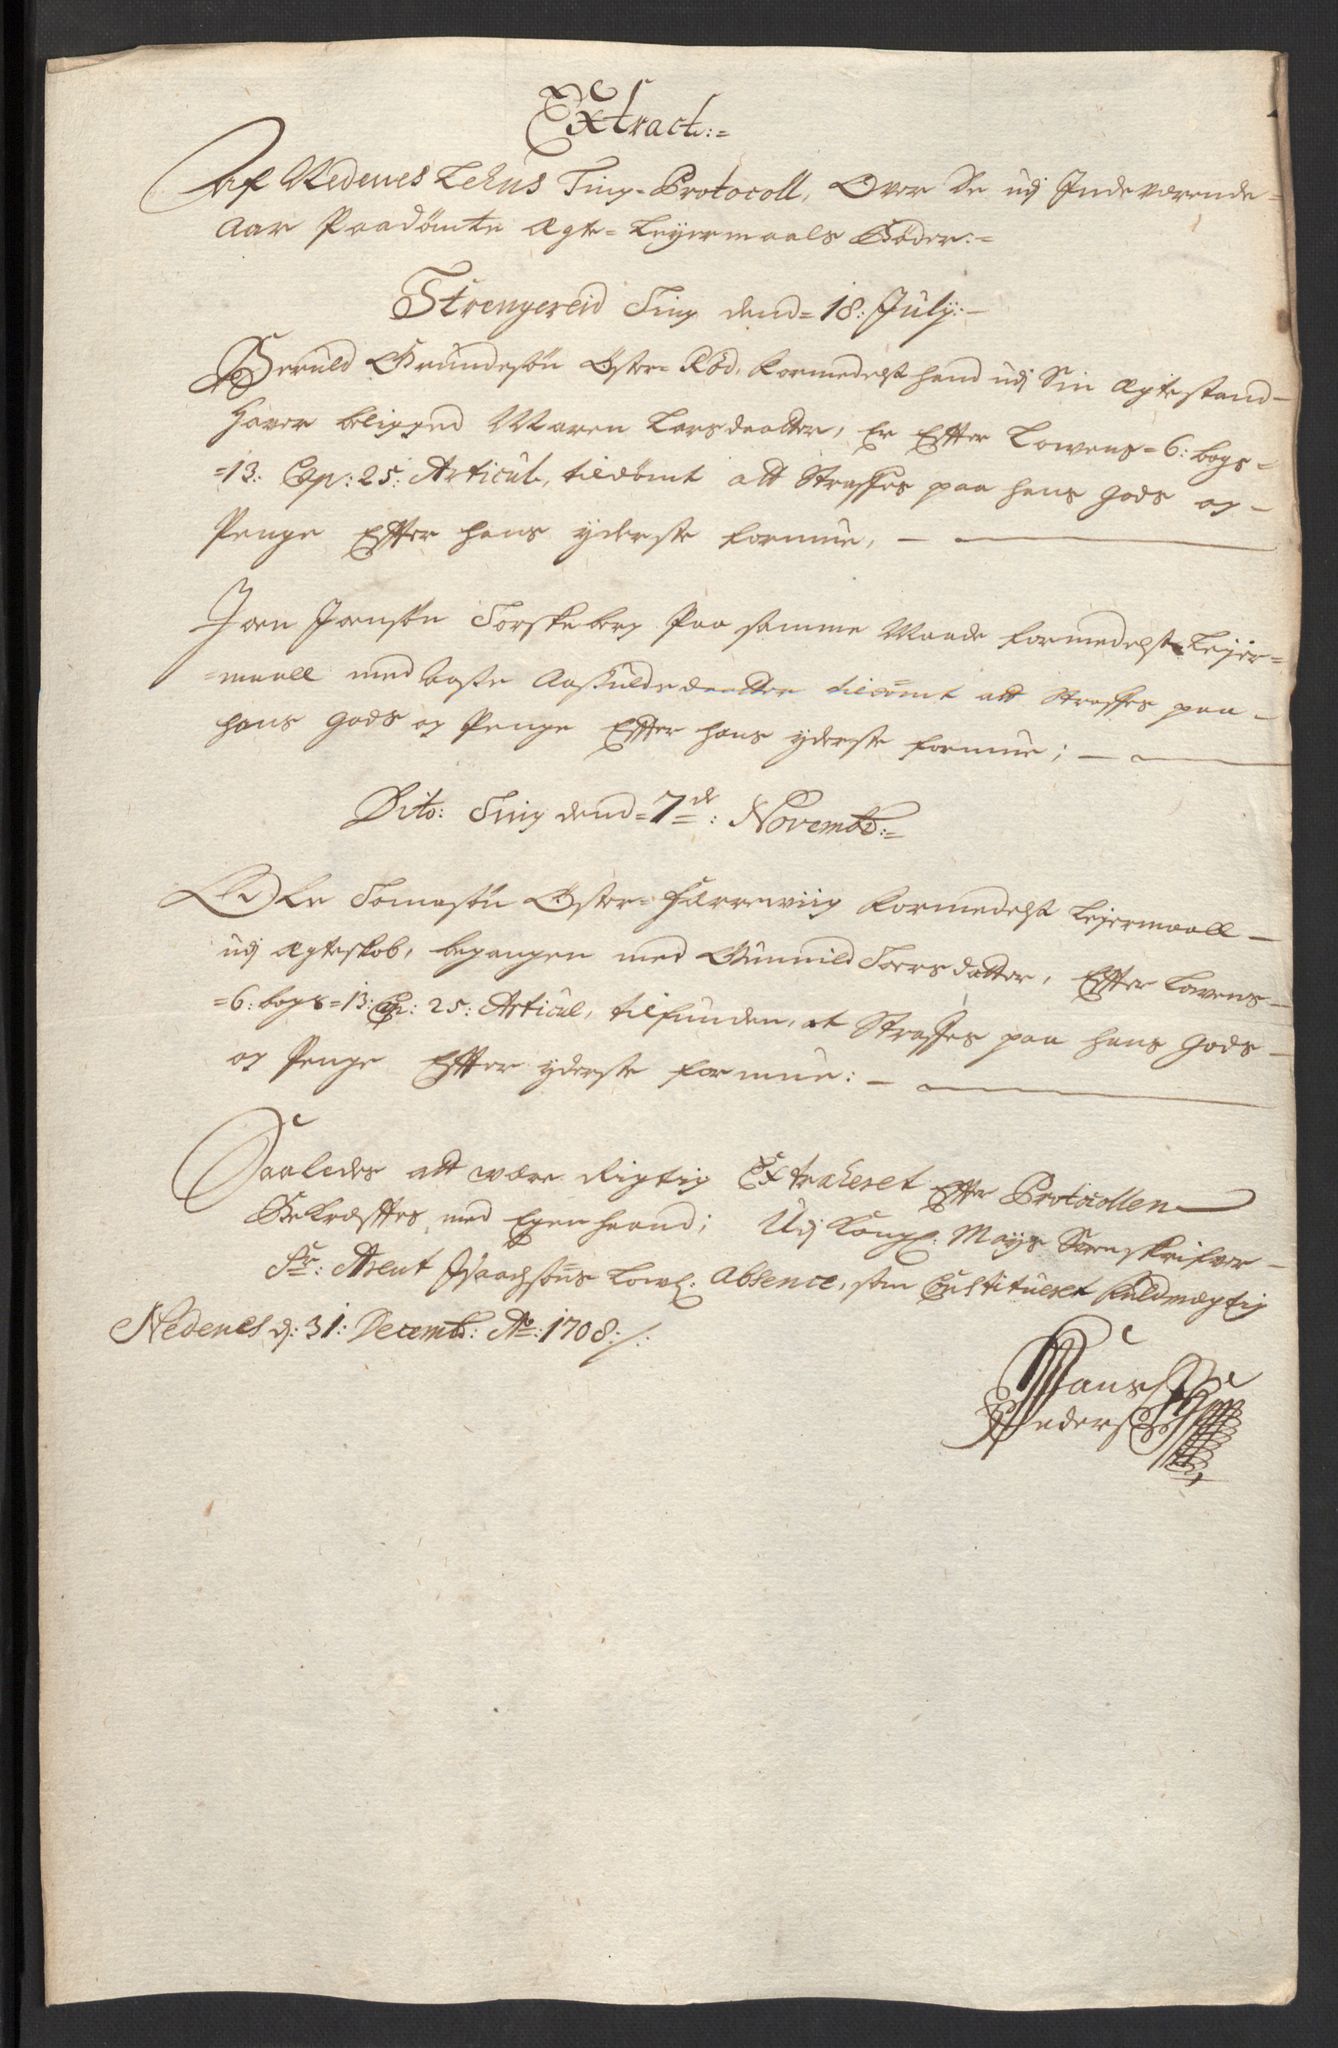 Extract:=
Af Nedenes Lehns Ting-Protocoll, Over De udj Indeværende=
Aar Paadömte Egte-Leyermaals Bøder:=
Strengereid Ting dend=18: July:-
Beruld Gundesön Öster-Röd, formedelst hand udj Sin Egtestand-
hafver beligged Maren Larsdaatter, Er Efter Lowens=6: bogs=
=13: Cap: 25: Articul, tildömt att Straffes paa hans gods og-
Penge Efter hans yderste formue, -
Joen Joensön Torskeberg Paa samme Maade formedelst Leyer=
=maall med Aaste Aasuldsdaatter tildömt att Straffes paa-
hans gods og Penge Efter hans yderste formue; -
Dito: Ting dend=7de: Novembr:=
Ole Tomasön Öster- formedelst Lejermaall-
udj Egteskab, begangen med Gunnild Toersdatter, Efter Lowens-
=6: bogs=13: Cap: 25: Articul, tilfunden, at Straffes paa hans gods-
og Penge Efter yderste formue: -
Saaledes att være Rigtig Extraheret Efter Protocollen
Bekræfftes med Egen haand; Udj Kongl: Mayts Sorenskrifver-
Sr: Arent Isaachsöns Lowl: Absence, som Constitueret fuldmægtig
Nedenes d: 31: Decembr: Ao: 1708:/:
Hans
Peders